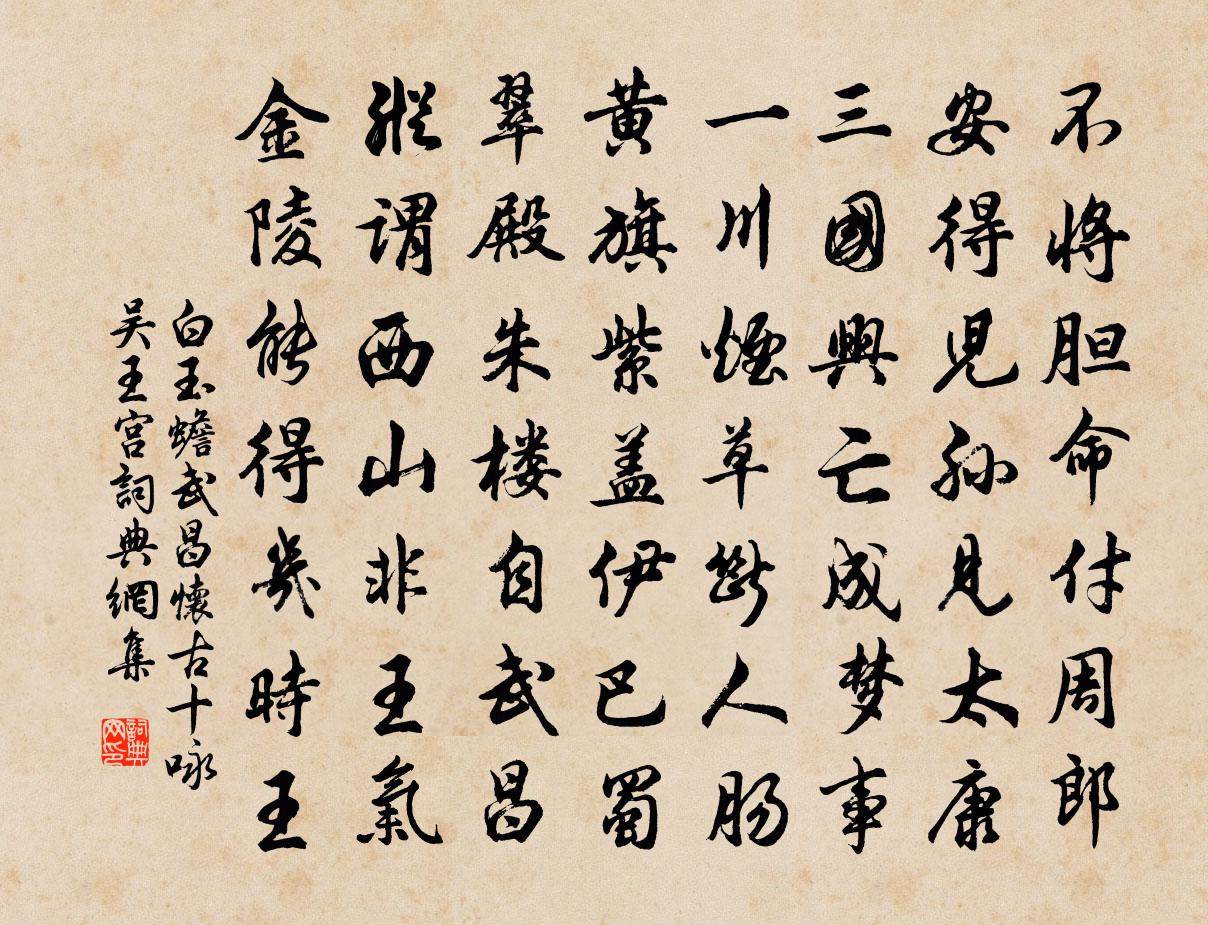 不将胆命付周郎
安得児孙見太康
三國興亡成梦事
一川煙草断人肠
黄旗紫盖伊巴蜀
翠殿朱楼自武昌
縱謂西山非王氣
金陵能得幾時王
白玉蟾武昌懷古十咏
吴王宫詞典網集
詞典网印